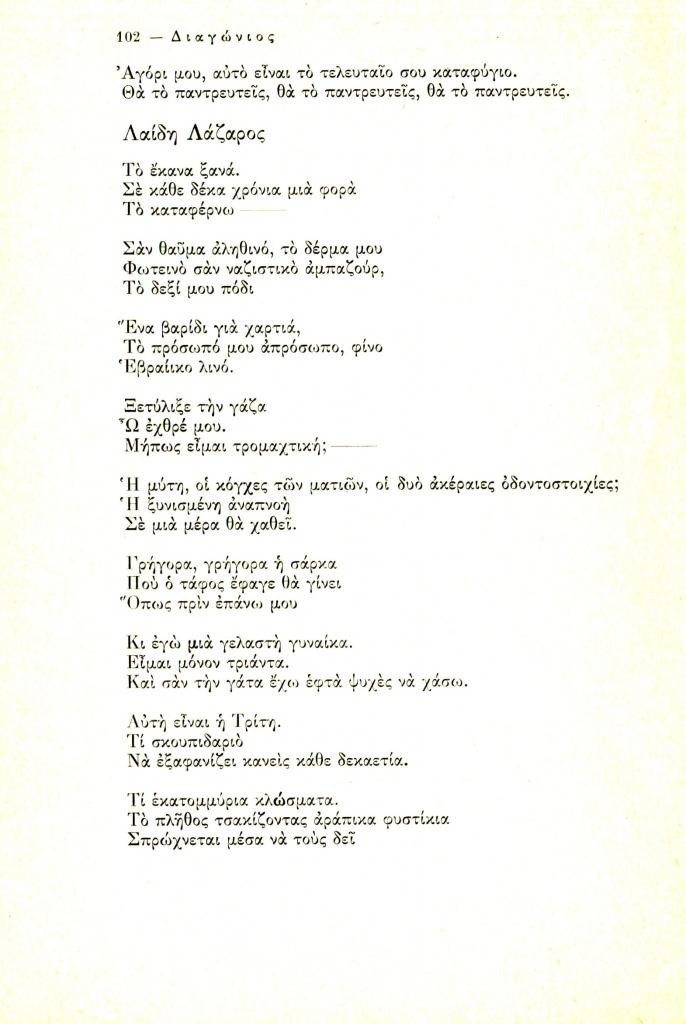 102 — Διαγώνιος
Ἀγόρι μου, αὐτὸ εἶναι τὸ τελευταῖο σου καταφύγιο.
Θὰ τὸ παντρευτεῖς, θὰ τὸ παντρευτεῖς, θὰ τὸ παντρευτεῖς.
Λαίδη Λάζαρος
Τὸ ἔκανα ξανά.
Σὲ κάθε δέκα χρόνια μιὰ φορὰ
Τὸ καταφέρνω ———
Σὰν θαῦμα ἀληθινό, τὸ δέρμα μου
Φωτεινὸ σὰν ναζιστικὸ ἀμπαζούρ,
Τὸ δεξί μου πόδι
Ἕνα βαρίδι γιὰ χαρτιά,
Τὸ πρόσωπό μου ἀπρόσωπο, φίνο
Ἑβραίικο λινό.
Ξετύλιξε τὴν γάζα
Ὦ ἐχθρέ μου.
Μήπως εἶμαι τρομαχτική; ———
Ἡ μύτη, οἱ κόγχες τῶν ματιῶν, οἱ δυὸ ἀκέραιες ὀδοντοστοιχίες;
Ἡ ξυνισμένη ἀναπνοὴ
Σὲ μιὰ μέρα θὰ χαθεῖ.
Γρήγορα, γρήγορα ἡ σάρκα
Ποὺ ὁ τάφος ἔφαγε θὰ γίνει
Ὅπως πρὶν ἐπάνω μου
Κι ἐγὼ μιὰ γελαστὴ γυναίκα.
Εἶμαι μόνον τριάντα.
Καὶ σὰν τὴν γάτα ἔχω ἑφτὰ ψυχὲς νὰ χάσω.
Αὐτὴ εἶναι ἡ Τρίτη.
Τί σκουπιδαριὸ
Νὰ ἐξαφανίζει κανεὶς κάθε δεκαετία.
Τί ἑκατομμύρια κλώσματα.
Τὸ πλῆθος τσακίζοντας ἀράπικα φυστίκια
Σπρώχνεται μέσα νὰ τοὺς δεῖ